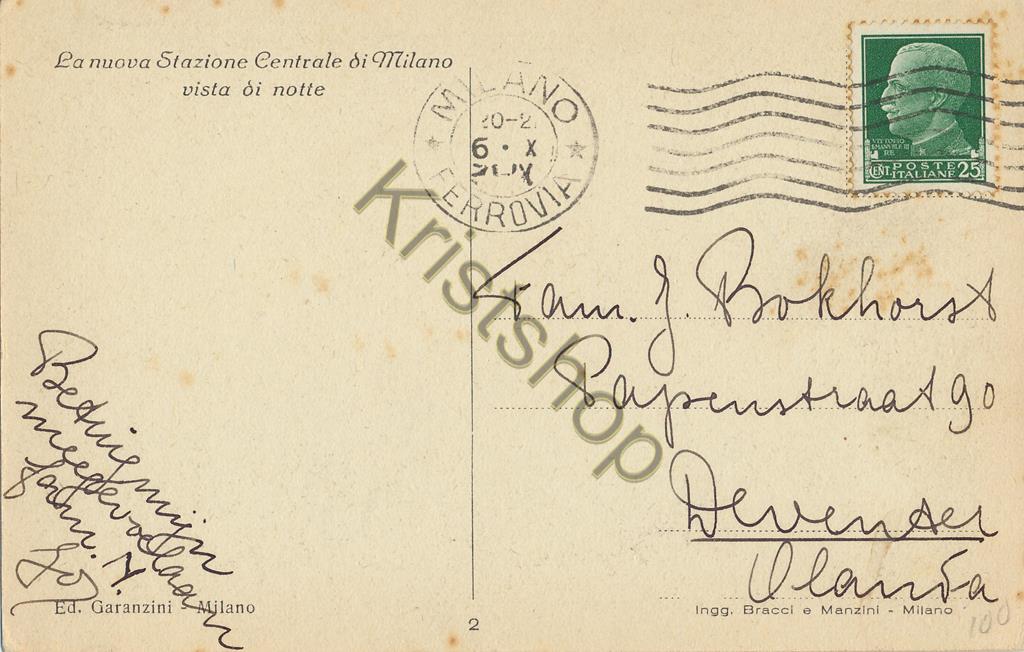 La nuova Stazione Centrale di Milano
vista di notte
MILANO
20-21
6 · X
FERROVIA
VITTORIO
EMANVELE III
RE
POSTE
CENT. ITALIANE 25
Fam. J. Bokhorst
Papenstraat 90
Deventer
Olanda
Betuig mijn
meegevoel aan
fam. J.
Ed. Garanzini - Milano
2
Ingg. Bracci e Manzini - Milano
100
Kristshop